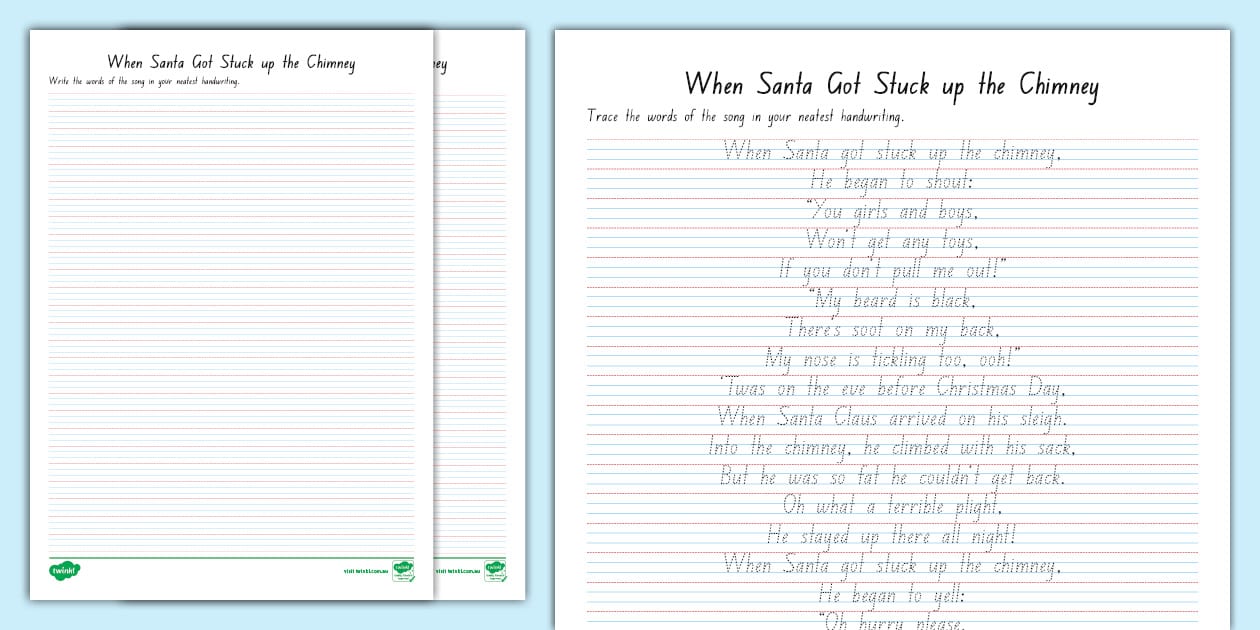 When Santa Got Stuck up the Chimney
Write the words of the song in your neatest handwriting.
twinkl
visit twinkl.com.au
ey
visit twinkl.com.au
When Santa Got Stuck up the Chimney
Trace the words of the song in your neatest handwriting.
When Santa got stuck up the chimney,
He began to shout:
“You girls and boys,
Won't get any toys,
If you don't pull me out!”
“My beard is black,
There's soot on my back,
My nose is tickling too, ooh!”
'Twas on the eve before Christmas Day,
When Santa Claus arrived on his sleigh.
Into the chimney, he climbed with his sack,
But he was so fat he couldn't get back.
Oh what a terrible plight,
He stayed up there all night!
When Santa got stuck up the chimney,
He began to yell:
“Oh hurry please,